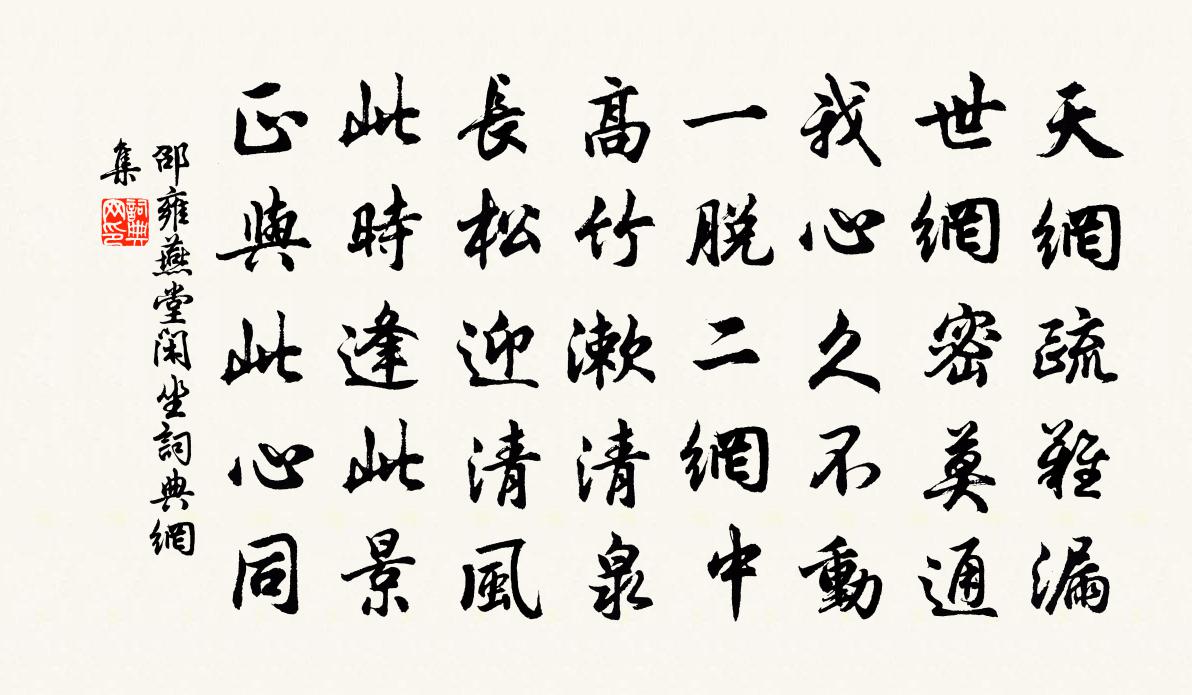 天網疏難漏
世網密莫通
我心久不動
一脫二網中
高竹漱清泉
長松迎清風
此時逢此景
正與此心同
邵雍燕堂閑坐詞典網
集
詞典
网印